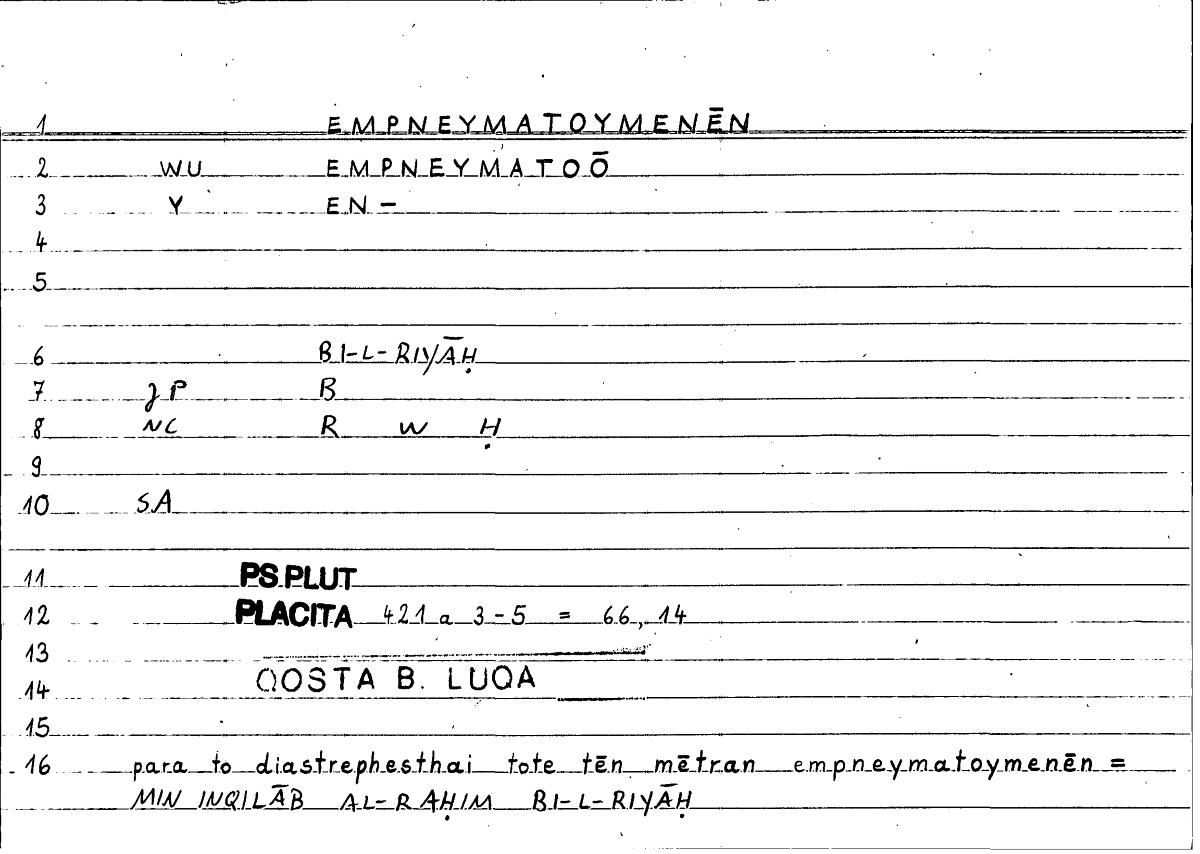 1 EMPNEYMATOYMENĒN
2 WU EMPNEYMATOŌ
3 Y EN-
4
5
6 BI-L-RIYĀḤ
7 JP B
8 NC R W Ḥ
9
10 SA
11 PS.PLUT
12 PLACITA 421 a 3-5 = 66, 14
13
14 QOSTA B. LUQA
15
16 para to diastrephesthai tote tēn mētran empneymatoymenēn =
MIN INQILĀB AL-RAḤIM BI-L-RIYĀḤ